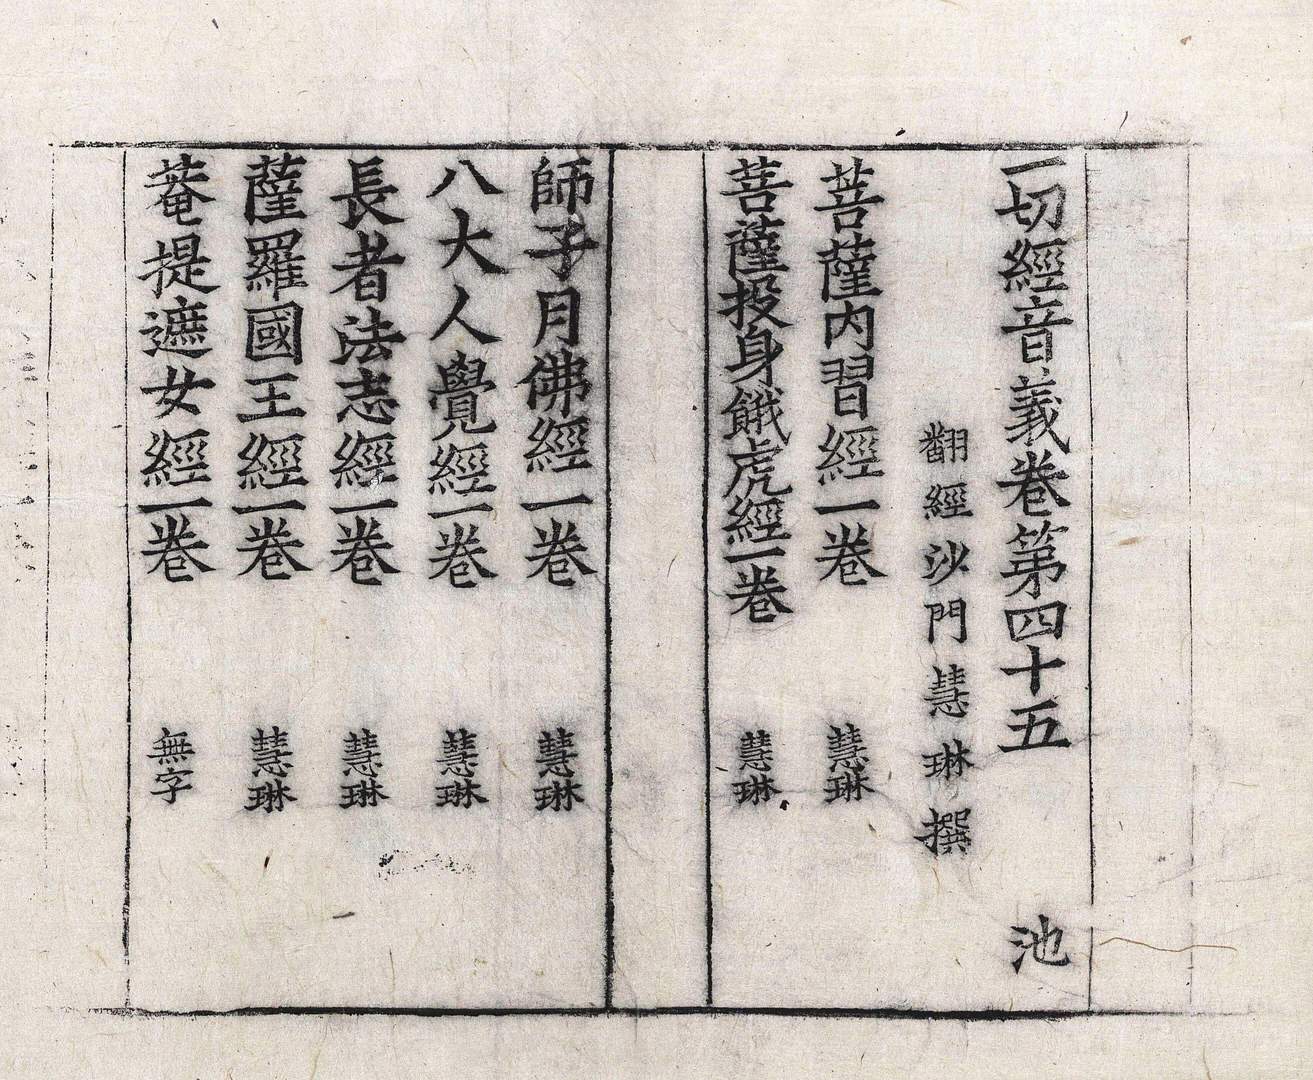 一切經音義卷第四十五 池
翻經沙門慧琳撰
菩薩内習經一卷 慧琳
菩薩投身餓虎經一卷 慧琳
師子月佛經一卷 慧琳
八大人覺經一卷 慧琳
長者法志經一卷 慧琳
薩羅國王經一卷 慧琳
菴提遮女經一卷 無字